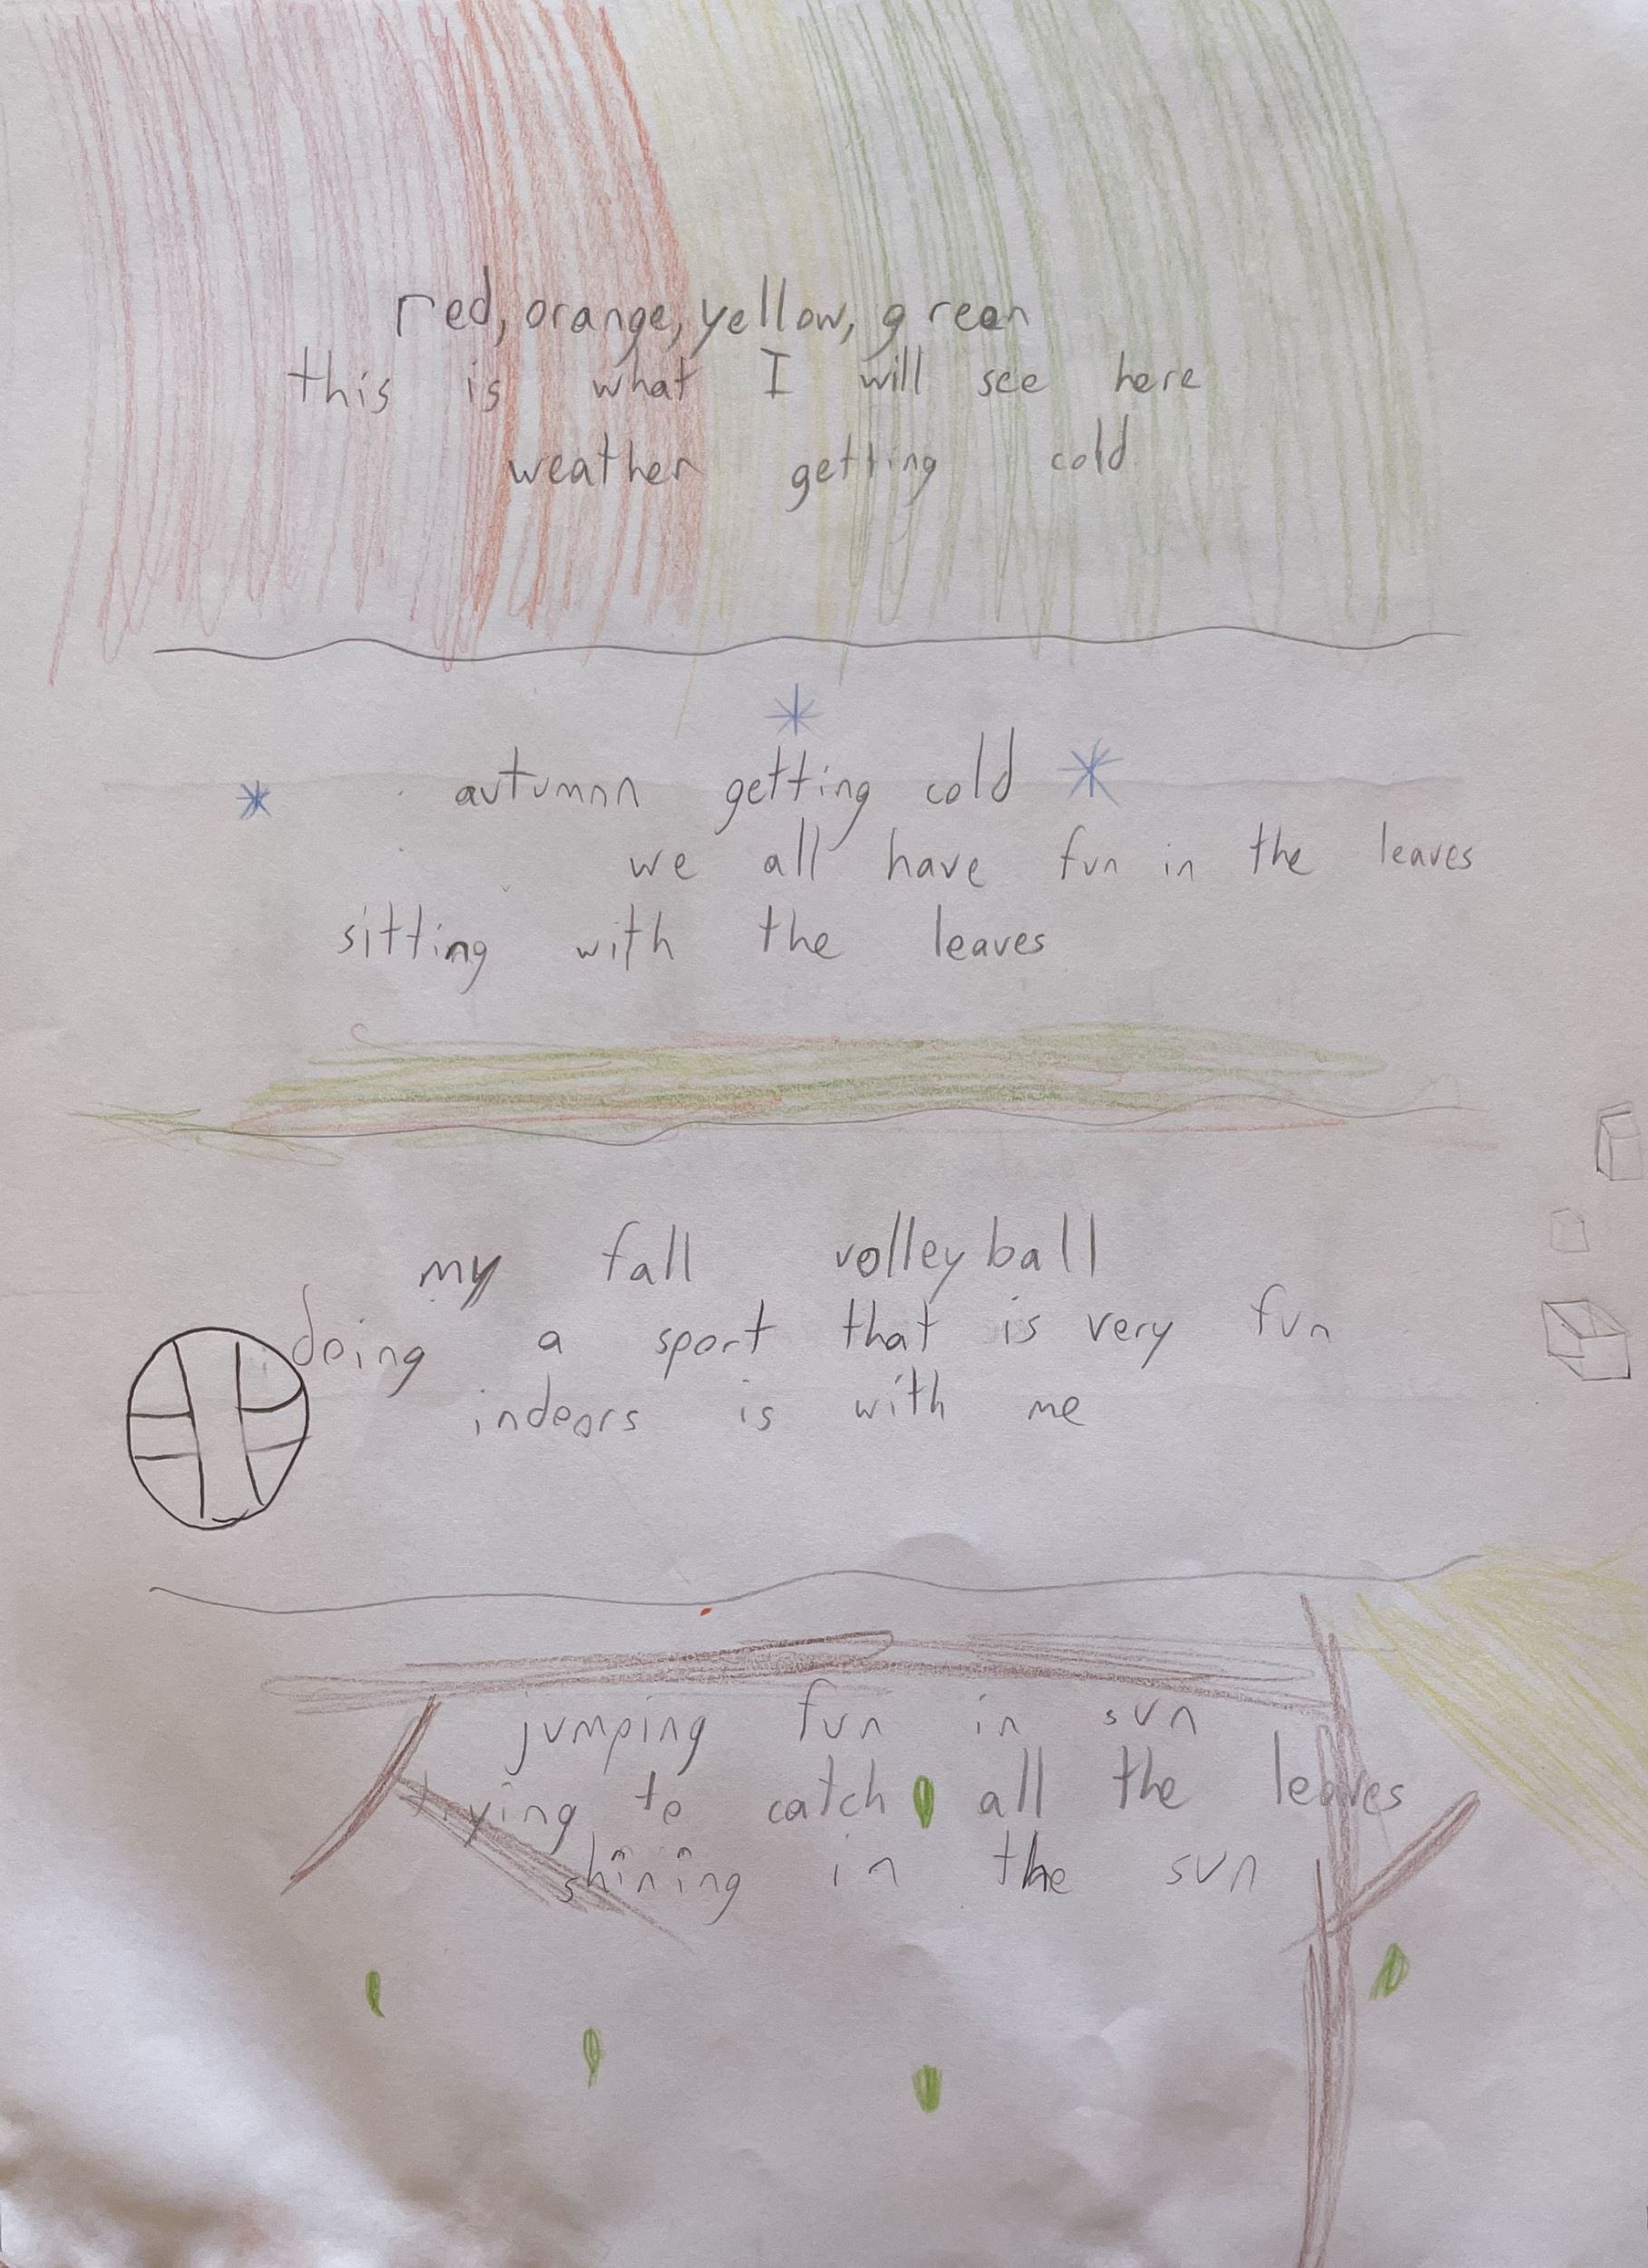 red, orange, yellow, green
this is what I will see here
weather getting cold
autumnn getting cold
we all have fun in the leaves
sitting with the leaves
my fall volleyball
doing a sport that is very fun
indoors is with me
jumping fun in sun
trying to catch all the leaves
shining in the sun